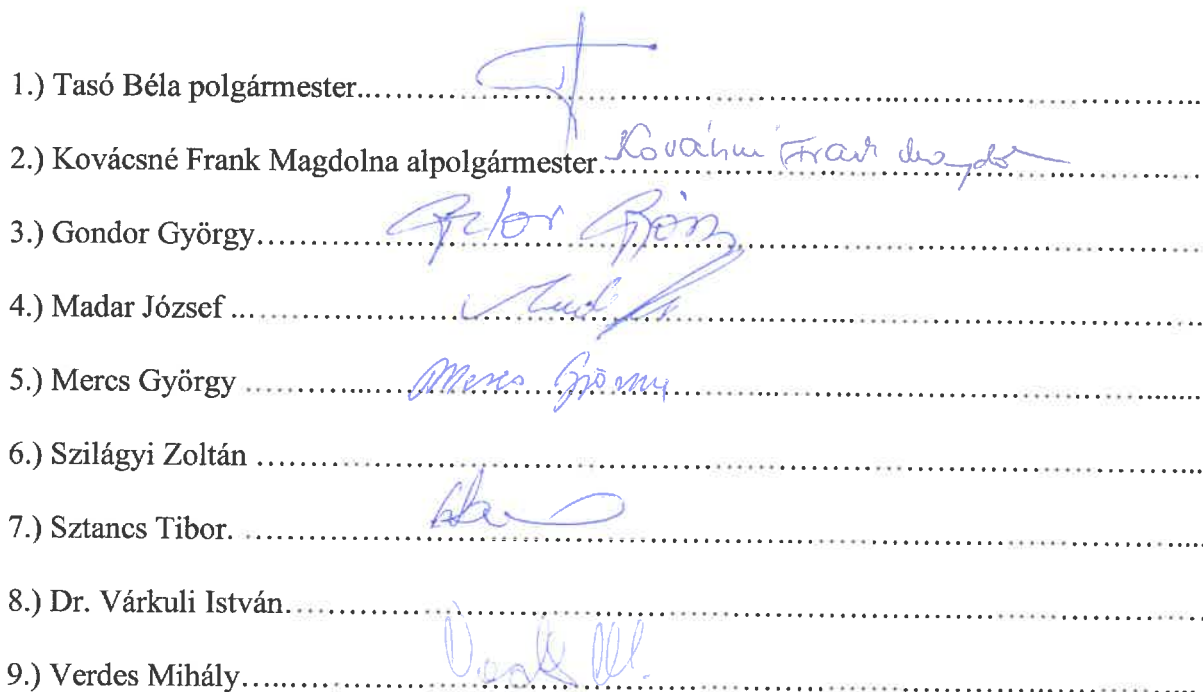 1.) Tasó Béla polgármester
2.) Kovácsné Frank Magdolna alpolgármester Kovácsné Frank Magdolna
3.) Gondor György
4.) Madar József
5.) Mercs György Mercs György
6.) Szilágyi Zoltán
7.) Sztancs Tibor.
8.) Dr. Várkuli István
9.) Verdes Mihály